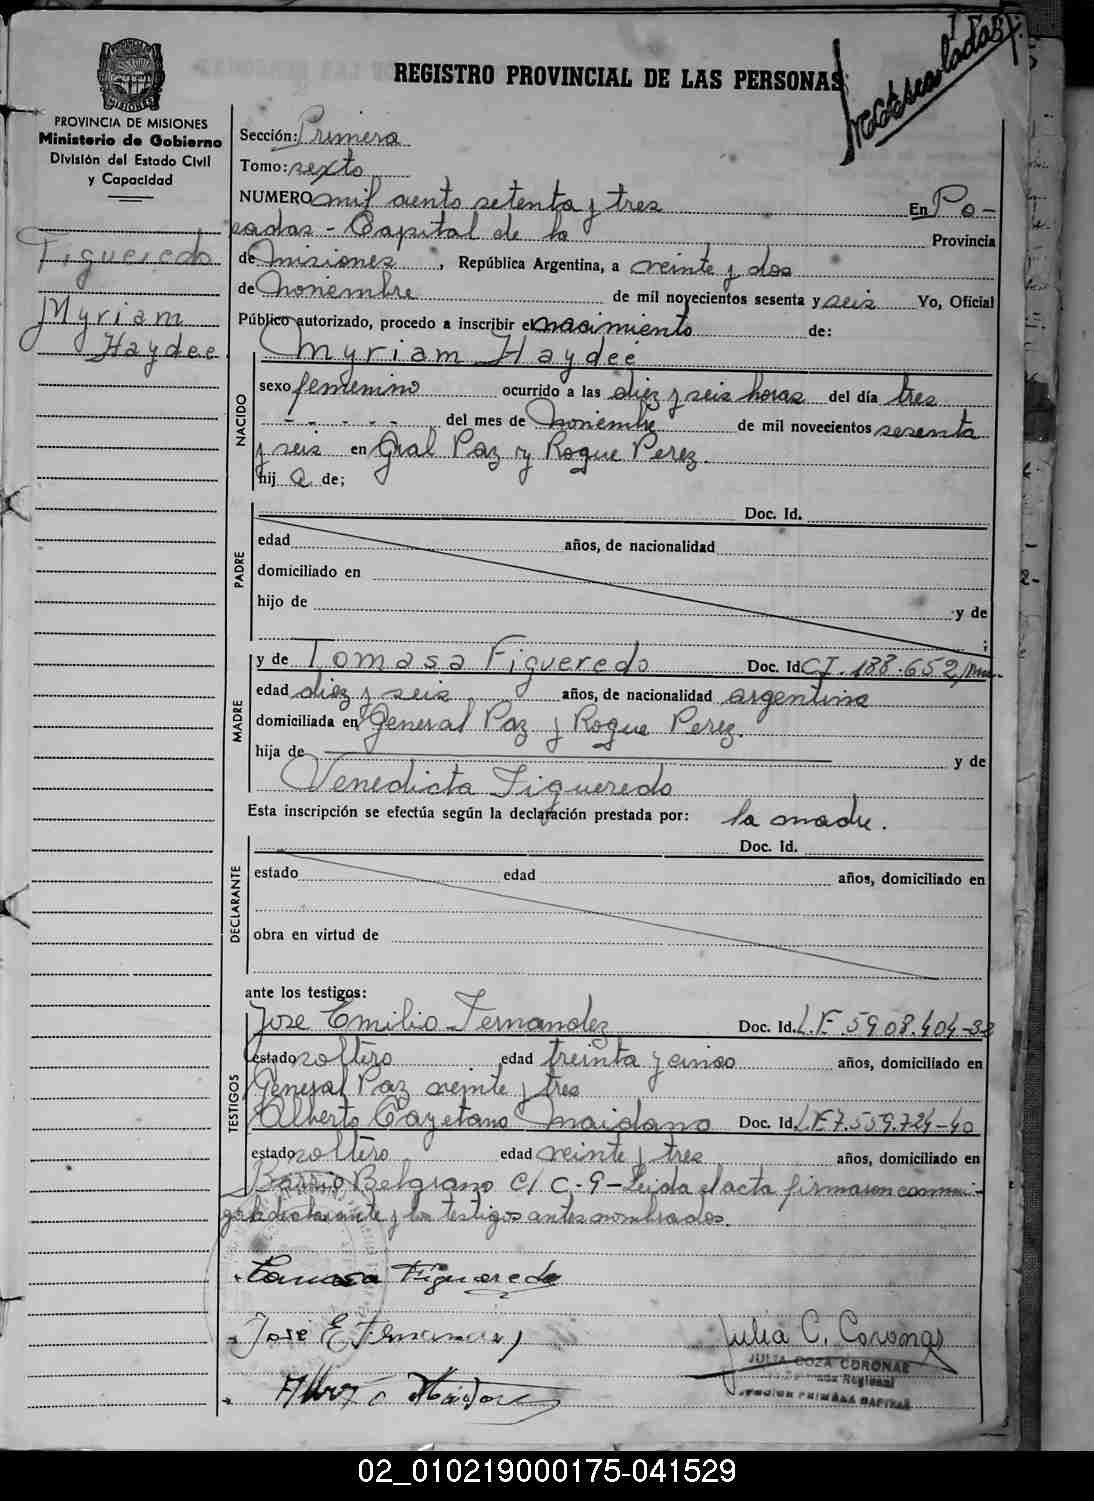 REGISTRO PROVINCIAL DE LAS PERSONAS
PROVINCIA DE MISIONES
Ministerio de Gobierno
División del Estado Civil
y Capacidad
Figueredo
Myriam
Haydeé
Sección: Primera
Tomo: sexto
NUMERO mil ciento setenta y tres En Po-
sadas - Capital de la Provincia
de Misiones, República Argentina, a veinte y dos
de Noviembre de mil novecientos sesenta y seis Yo, Oficial
Público autorizado, procedo a inscribir el nacimiento de:
Myriam Haydeé
NACIDO
sexo femenino ocurrido a las diez y seis horas del día tres
- - - - - del mes de Noviembre de mil novecientos sesenta
y seis en Gral Paz y Roque Perez.
hij a de;
PADRE
Doc. Id.
edad años, de nacionalidad
domiciliado en
hijo de y de
;
MADRE
y de Tomasa Figueredo Doc. Id CI. 188.652, Mnes.
edad diez y seis años, de nacionalidad argentina
domiciliada en General Paz y Roque Perez.
hija de y de
Venedicta Figueredo
Esta inscripción se efectúa según la declaración prestada por: la madre.
DECLARANTE
Doc. Id.
estado edad años, domiciliado en
obra en virtud de
ante los testigos:
TESTIGOS
Jose Emilio Fernandez Doc. Id. L.E 5908.404-32
estado soltero edad treinta y cinco años, domiciliado en
General Paz veinte y tres
Alberto Cayetano Maidana Doc. Id. L.E 7.559.724-40
estado soltero edad veinte y tres años, domiciliado en
Barrio Belgrano C/ C-9 - Leida el acta firmaron conmi-
go la declarante y los testigos antes nombrados.
Tomasa Figueredo
Jose E Fernandez
Julia C. Coronas
JULIA COZA CORONAS
Regional
SECCION PRIMERA CAPITAL
02_010219000175-041529